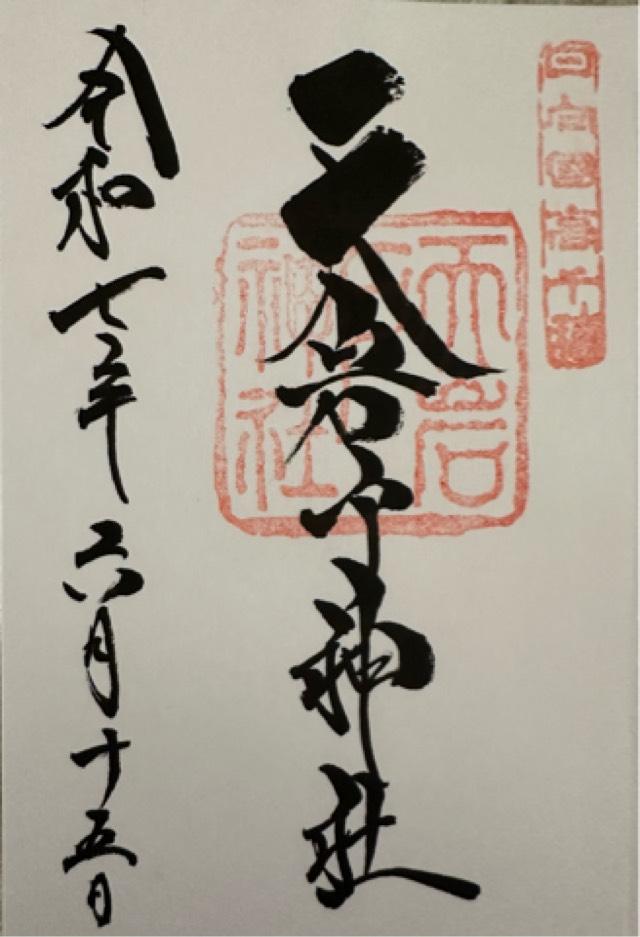 日向國高千穂
天岩戸神社
天岩戸神社
令和七年六月十五日